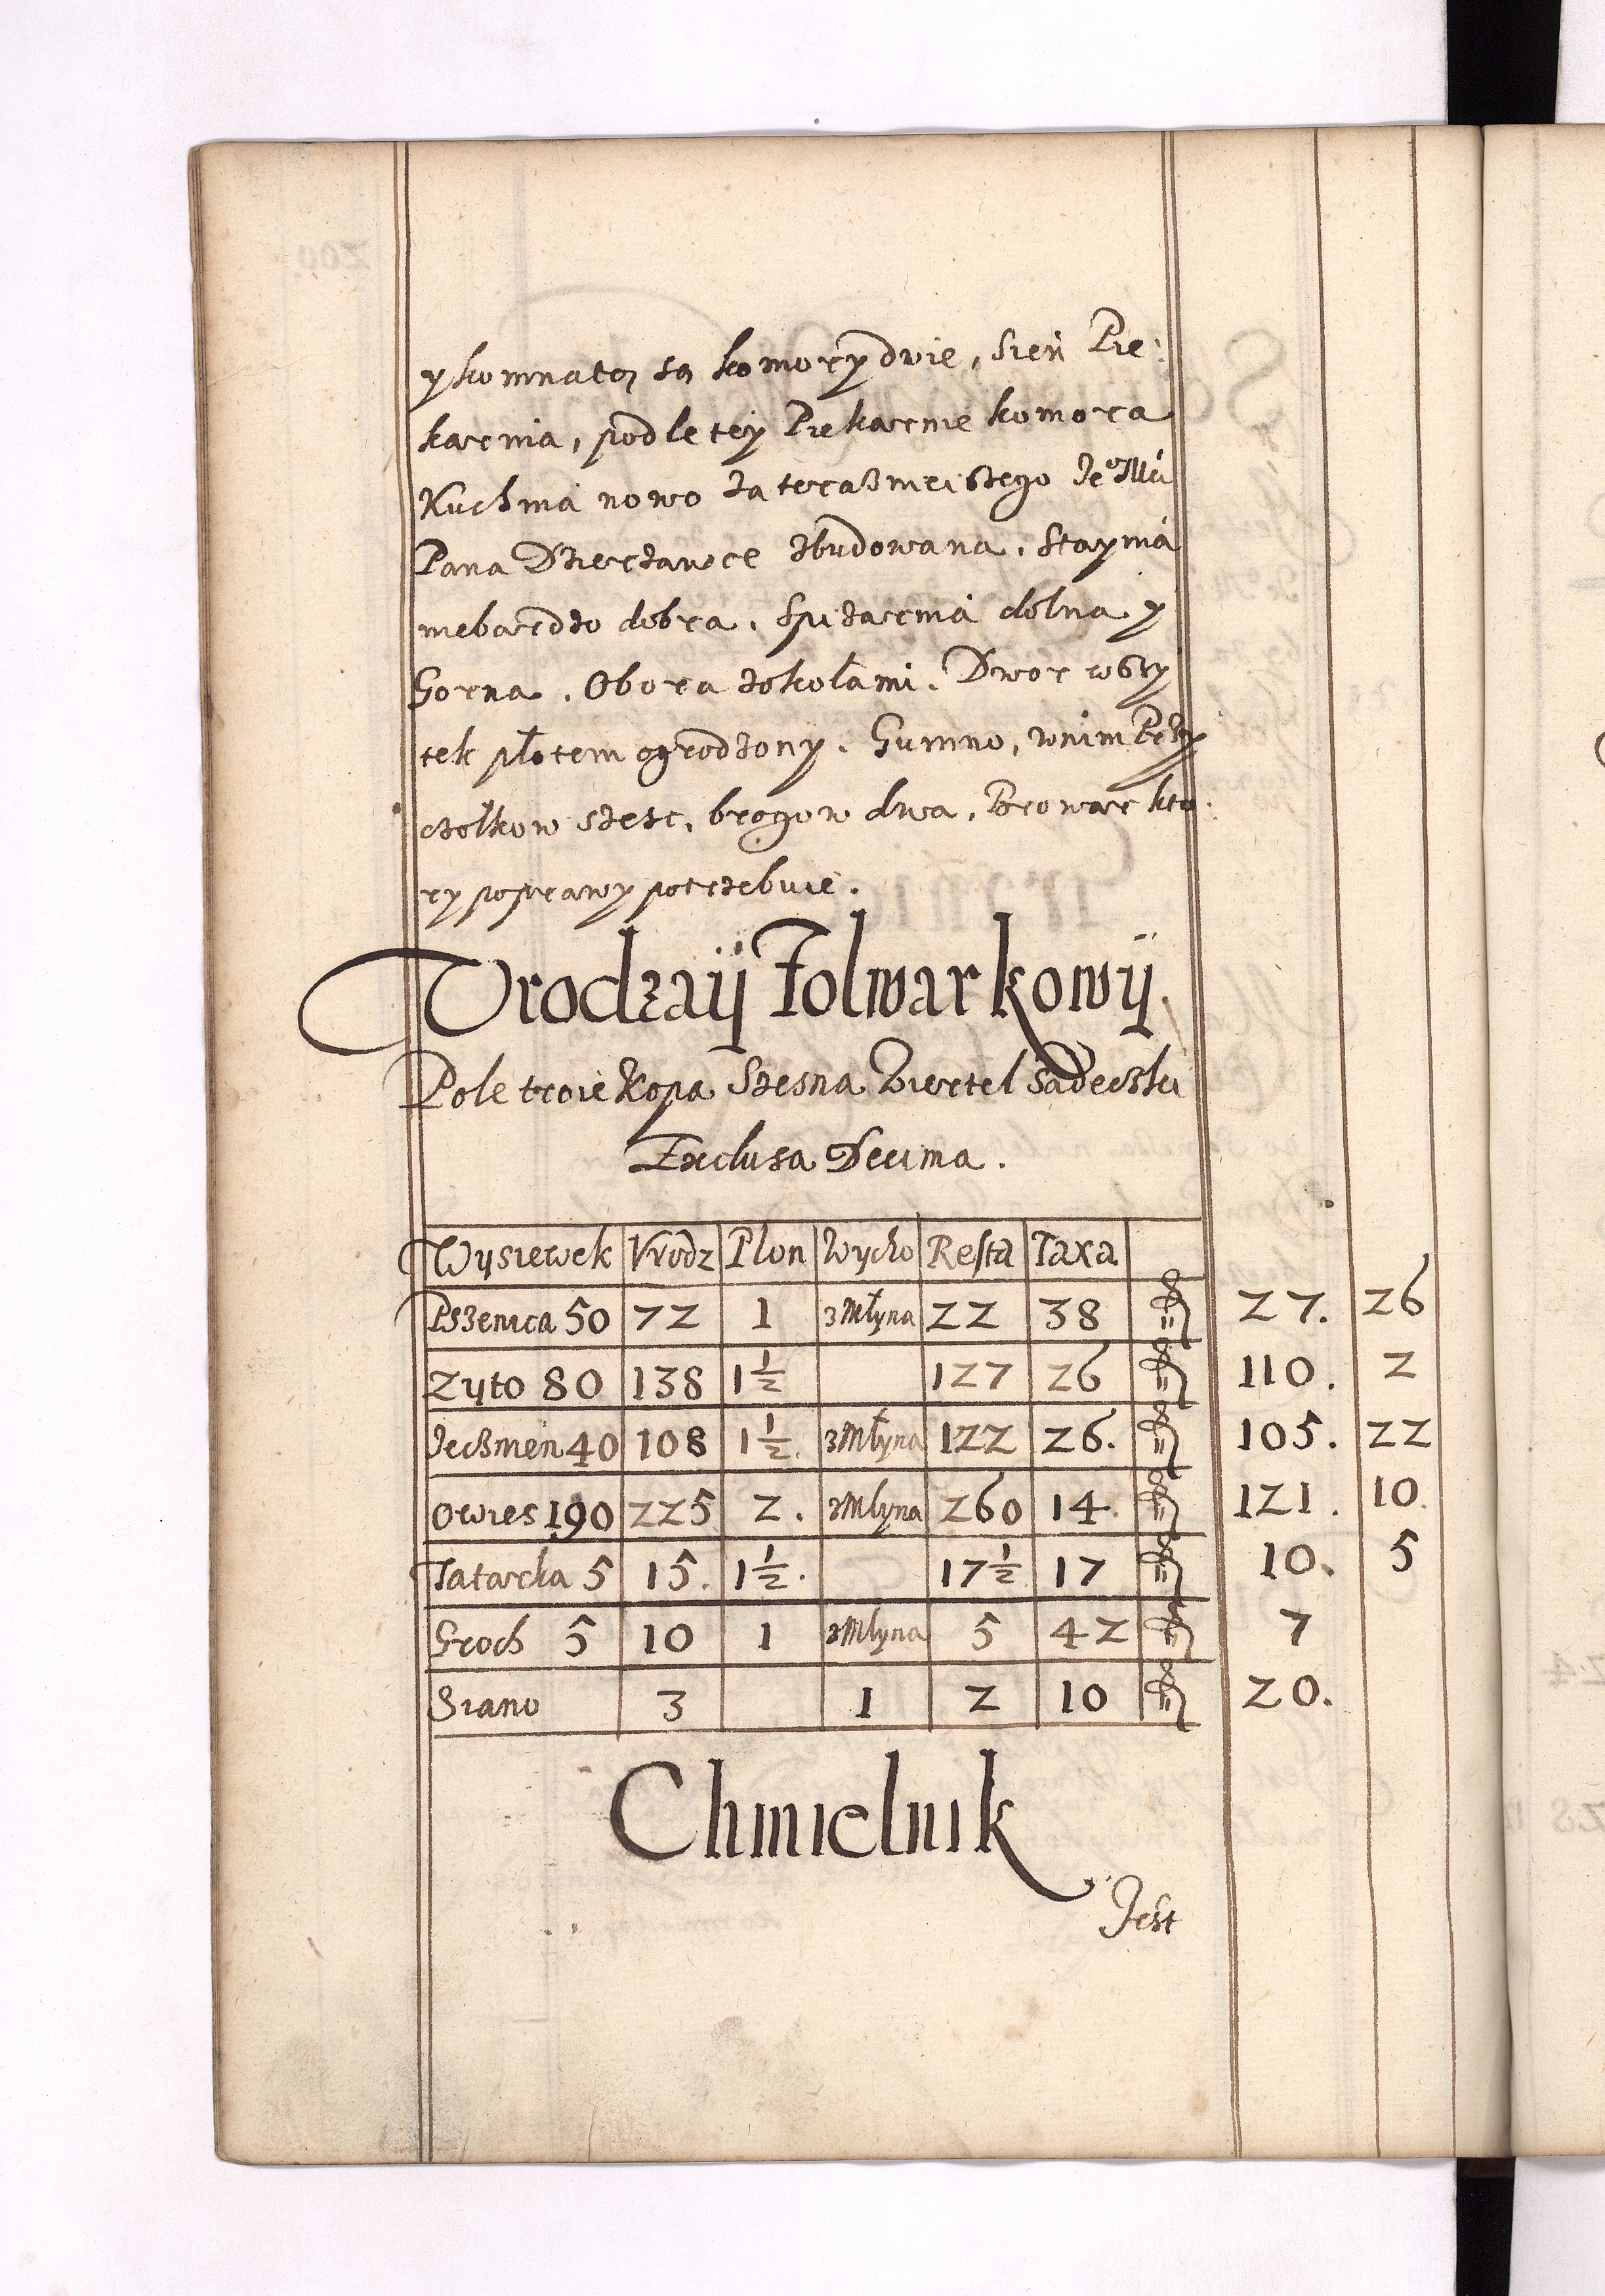 y komnatą są komory dwie, Sień Pie:
karnia, podle tey Piekarnie komora
Kuchniá nowo za teraßnieißego Je° Mći
Pana Dzierżawce zbudowana. Stayniá
niebardzo dobra. Spiżarniá dolna y
Gorna. Obora zokołami. Dwor wßy
tek płotem ogrodzony. Gumno, wnim Przy
czołkow szesc, brogow dwa, Browar kto:
ry poprawy potrzebuie.
Vrodzaÿ Folwarkowÿ.
Pole troie Kopa Szesna Zwiertel Sądecski
Exclusa Decima.
Wysiewek Vrodz Plon Wycho Resta Taxa
Pszenica 50 72 1 zMłyna 22 38 27. 26
Zyto 80 138 1½ 127 26 110. 2
Jecßmien 40 108 1½. zMłyna 122 26. 105. 22
Owies 190 225 2. zMlyna 260 14. 121. 10.
Tatarka 5 15. 1½. 17½ 17 10. 5
Groch 5 10 1 zMlyna 5 42 7
Siano 3 1 2 10 20.
Chmielnik
Jest